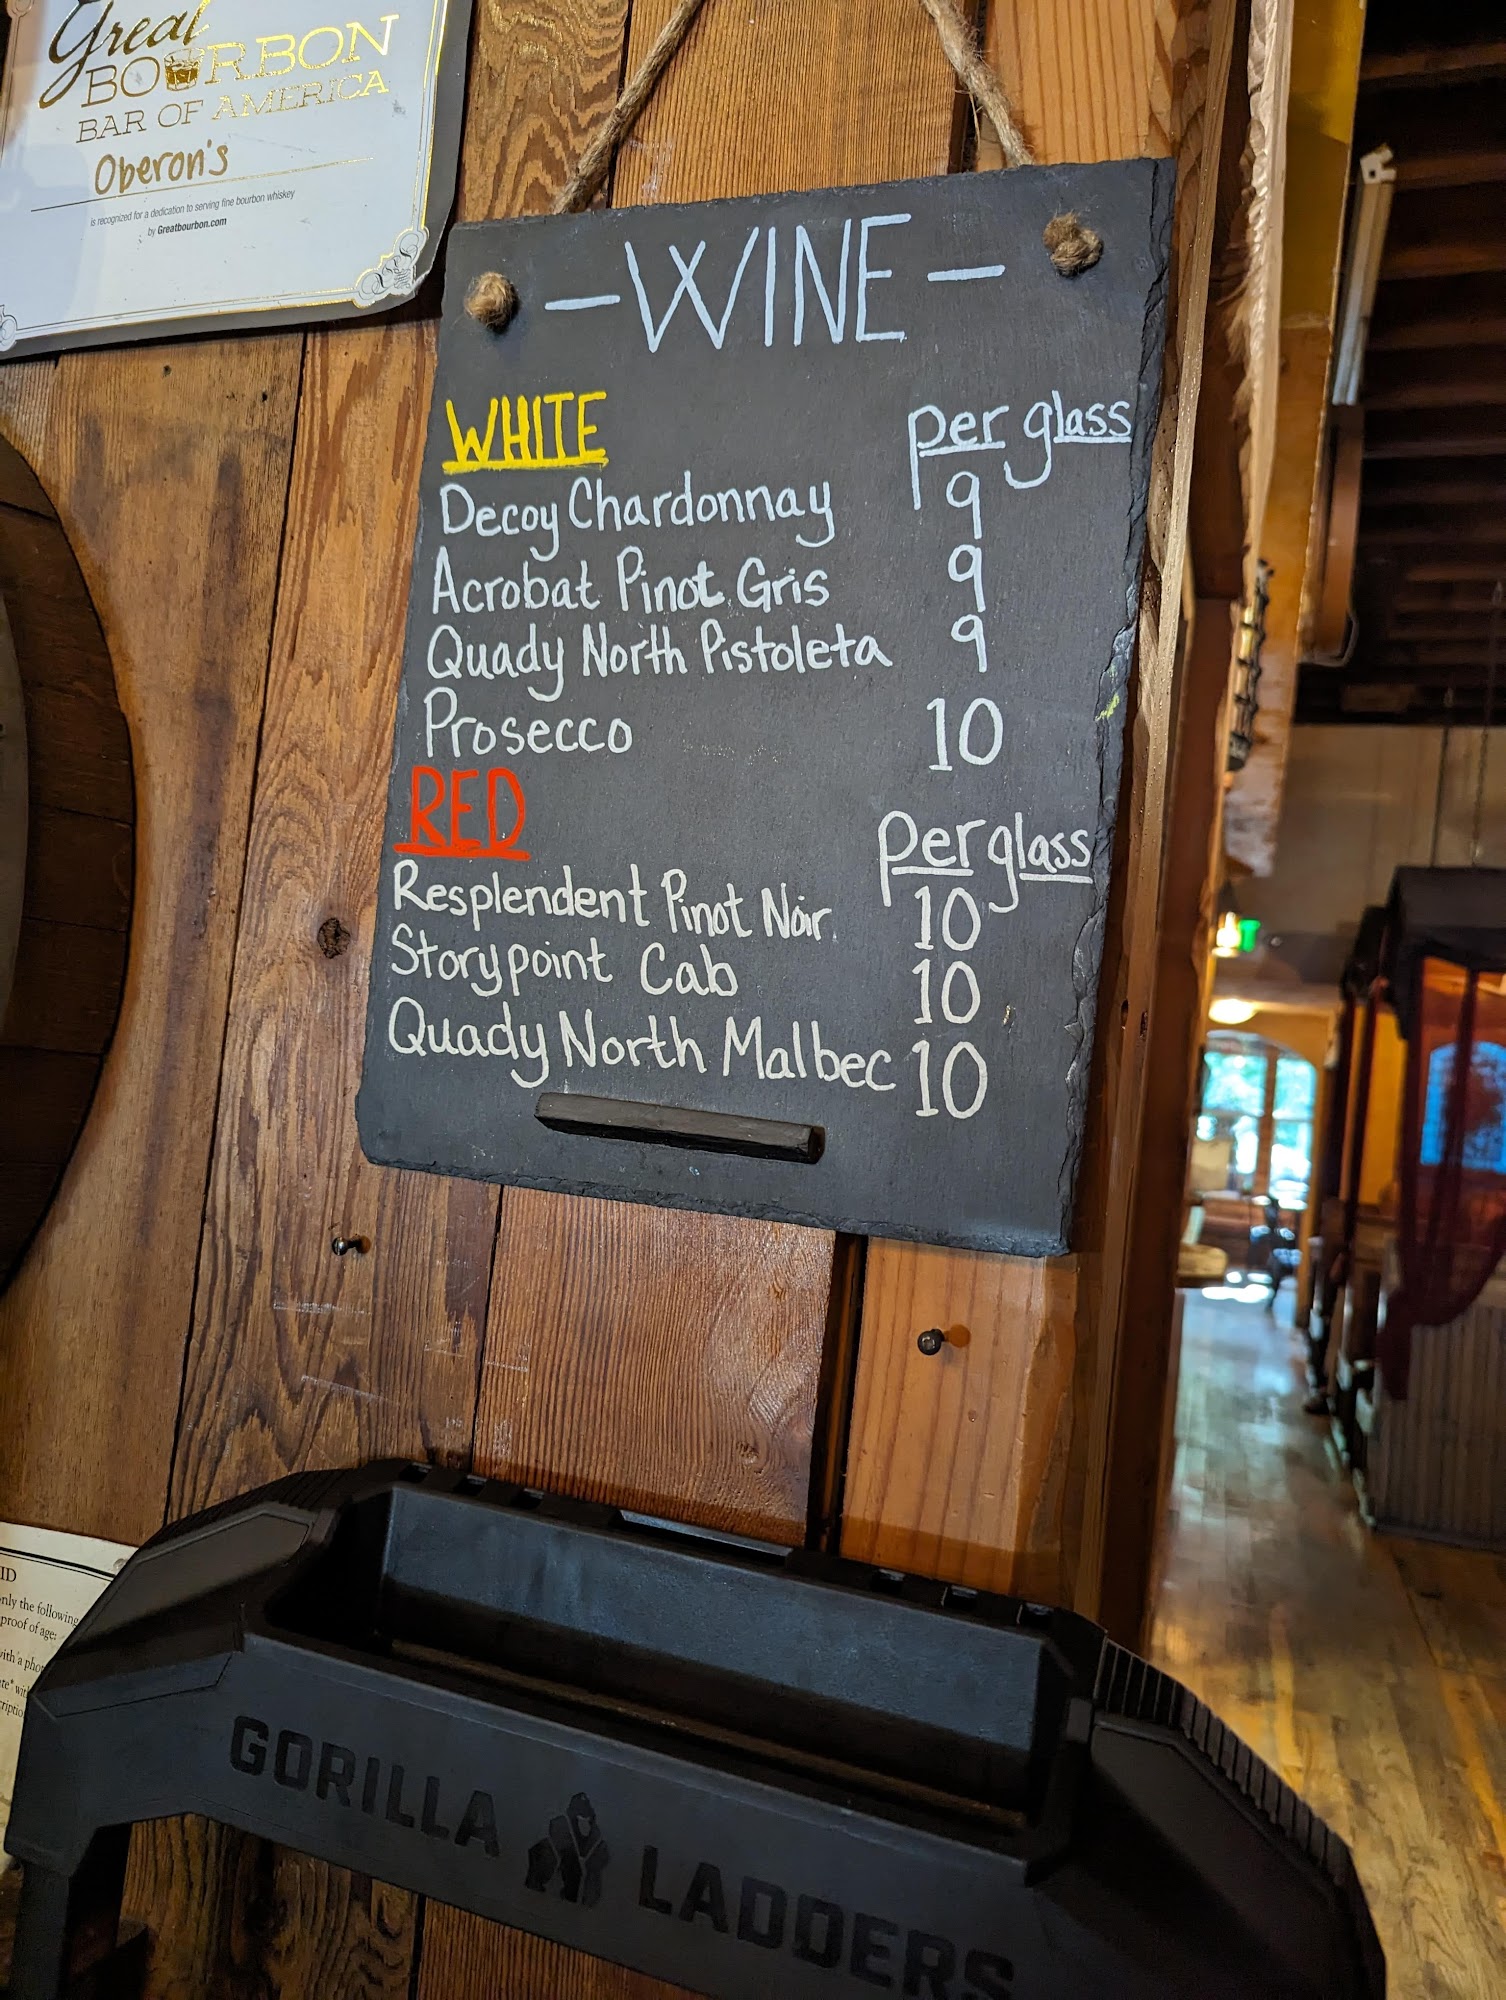 Great
BOURBON
BAR OF AMERICA
Oberon's
is recognized for a dedication to serving fine bourbon whiskey
by Greatbourbon.com
- WINE -
WHITE per glass
Decoy Chardonnay 9
Acrobat Pinot Gris 9
Quady North Pistoleta 9
Prosecco 10
RED per glass
Resplendent Pinot Noir 10
Storypoint Cab 10
Quady North Malbec 10
ID
only the following
proof of age:
GORILLA LADDERS